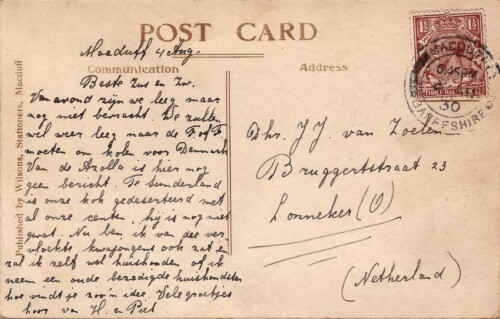 POST CARD
Macduff 4 Aug.
Communication
Address
Beste Zus en Zw.
Vanavond zijn we leeg maar
nog niet bevracht. De zullen
wel weer leeg maar de F of F
moeten om kolen voor Denmark
Van de Azolla is hier nog
geen bericht. Te Sunderland
is onze kok gedeserteerd met
al onze centen, hij is nog niet
gevat. Nu ben ik van dee ver-
vlochte kwajongens ook zat en
zal ik zelf wel huishouden of ik
neem een oude bezadigde huishoudster
hoe vindt je zoo'n idee. Vele groetjes
hoor van H. en Piet
Dhr. J.J. van Zoelen
Bruggertstraat 23
Lonneker (O)
(Netherland)
MACDUFF
6.45PM
30
BANFFSHIRE
1½
1½
Published by Wilsons, Stationers, Macduff